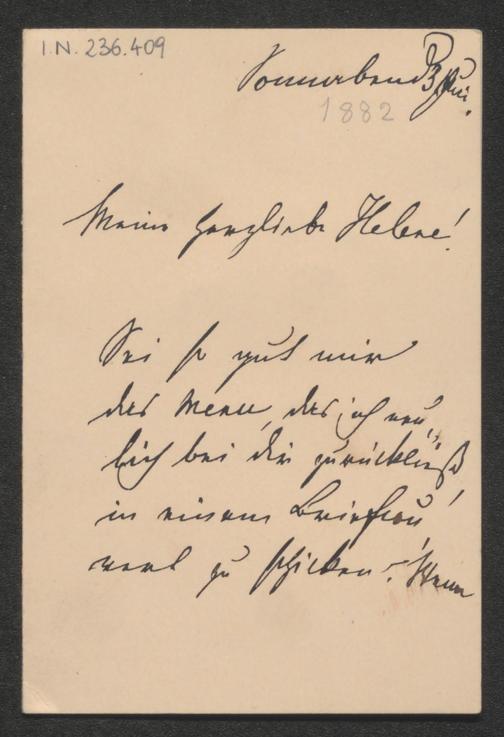 I.N. 236.409
Sonnabend 3 Juni.
1882
Meine herzliebe Helene!
Sei so gut mir
das Menu, das ich neu„
lich bei dir zurückließ
in einem Briefcou„
vert zu schicken. Wenn